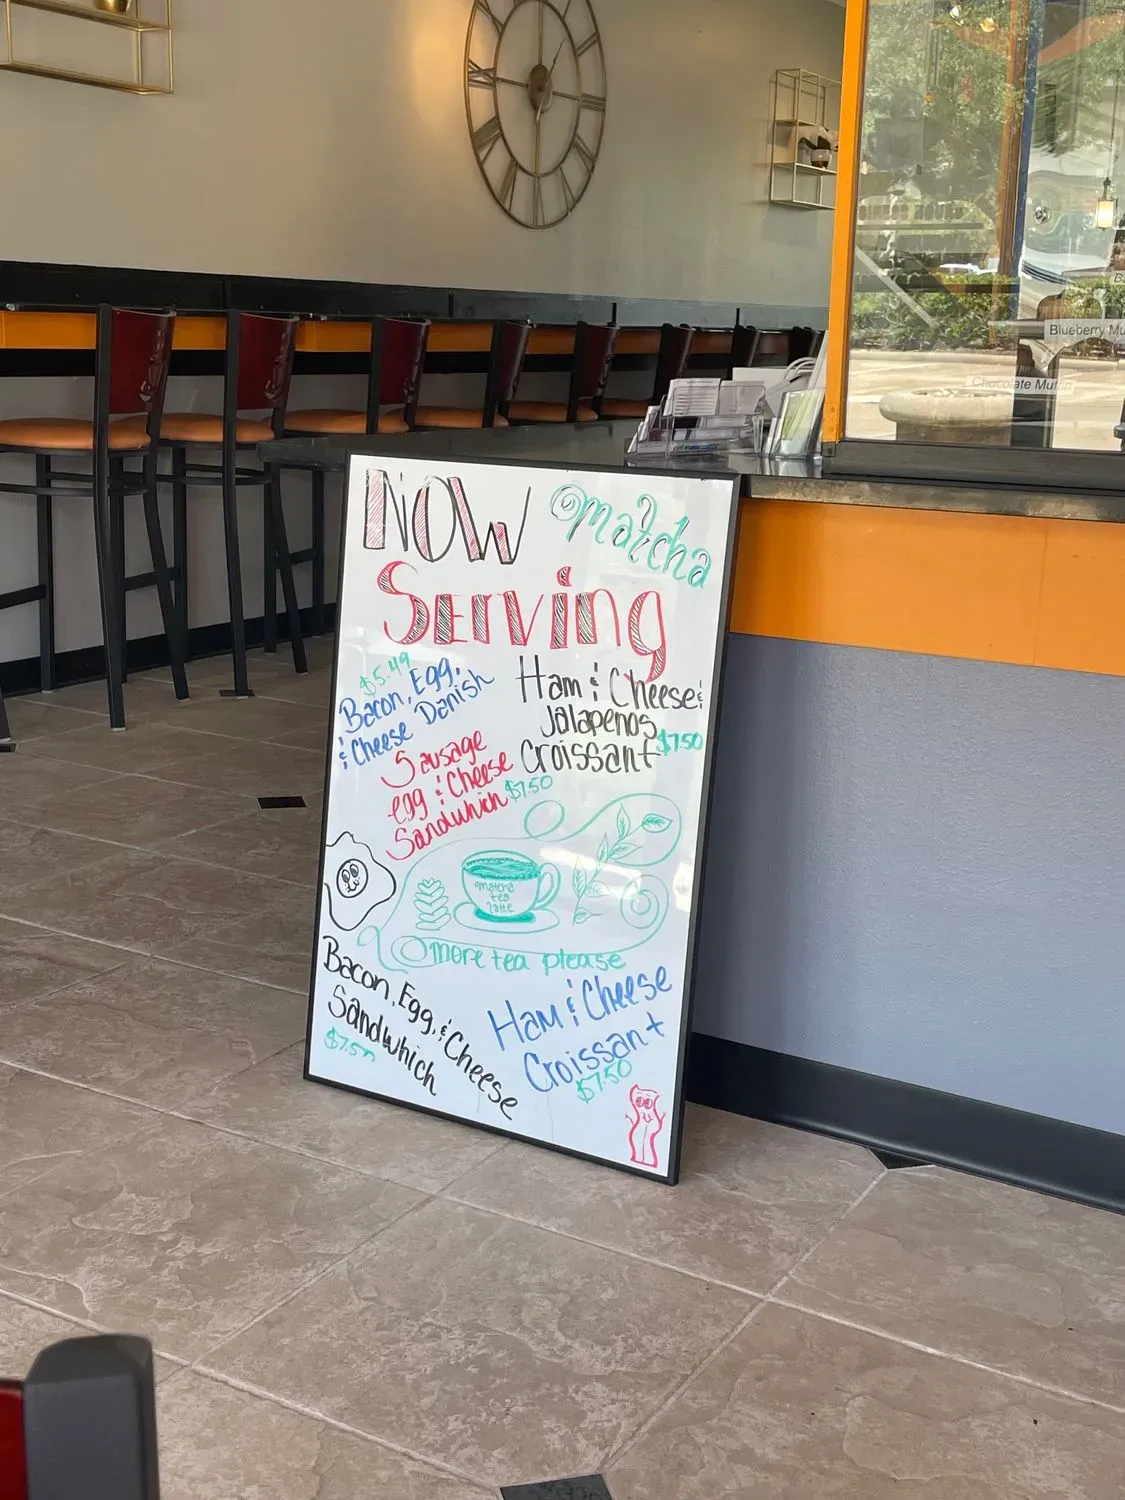 NOW
Matcha
Serving
$5.49
Bacon, Egg,
& Cheese Danish
Ham & Cheese &
Jalapenos
Croissant $7.50
Sausage
egg & Cheese
Sandwhich $7.50
matcha
tea
latte
more tea please
Bacon, Egg, & Cheese
Sandwhich
$7.50
Ham & Cheese
Croissant
$7.50
Blueberry Mu
Chocolate Muffin